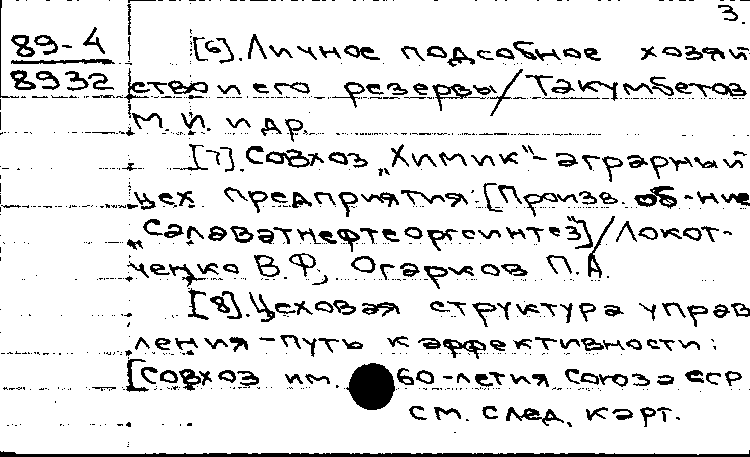 3.
89-4
8932
[6]. Личное подсобное хозяй
ство и его резервы/Такумбетов
М. И. и др.
[7]. Совхоз „Химик"-аграрный
цех предприятия: [Произв. об-ние
„Салаватнефтеоргсинтез"]/Локот-
ченко В.Ф., Огарков П.А.
[8]. Цеховая структура управ
ления-путь к эффективности:
[Совхоз им. 60-летия Союза ССР
см. след. карт.